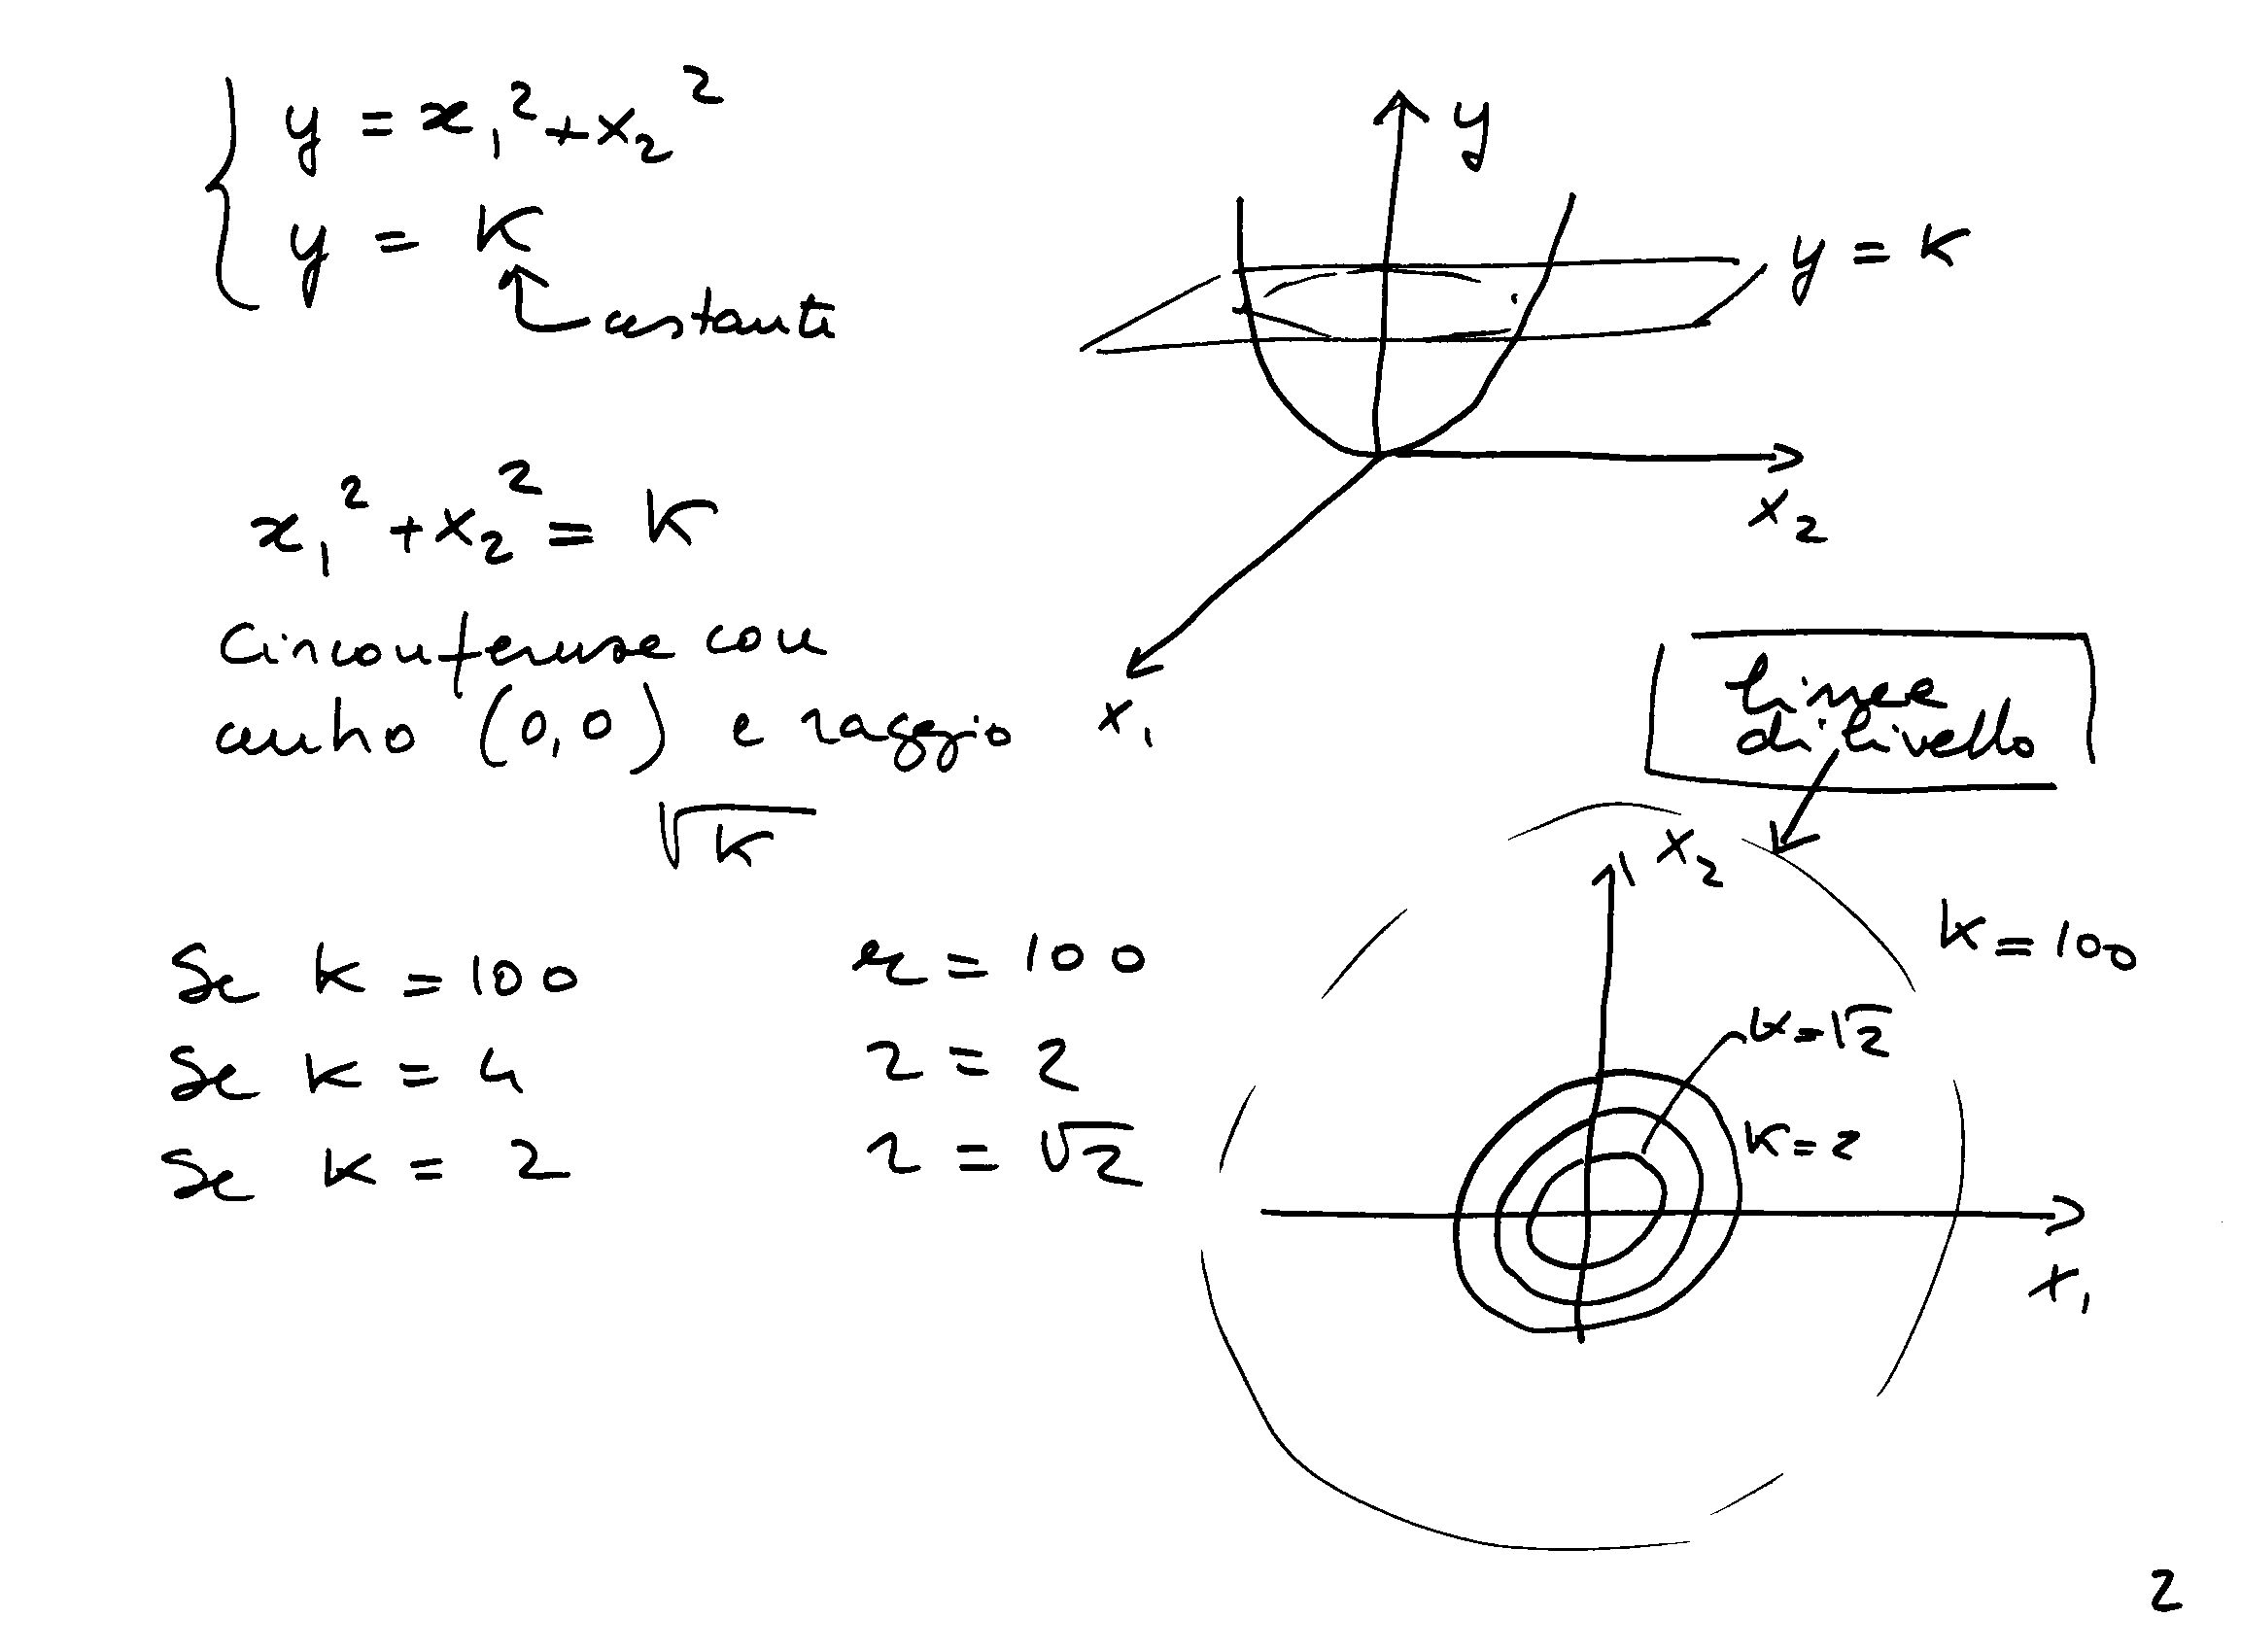 y = x₁² + x₂²
y = K
costante
x₁² + x₂² = K
Circonferenze con
centro (0,0) e raggio
√K
Se K = 100 r = 100
Se K = 4 r = 2
Se K = 2 r = √2
y
y = K
x₂
x₁
linee
di livello
x₂
K = 100
K = √2
K = 2
x₁
2